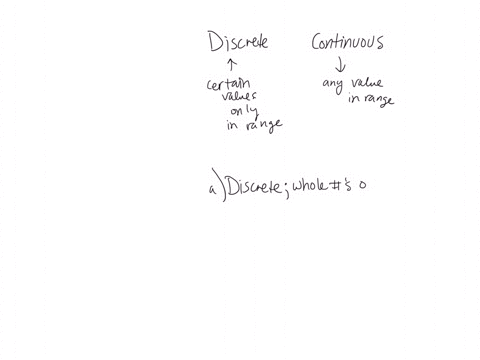 Discrete Continuous
↑ ↓
certain any value
values in range
only
in range
a) Discrete; whole #'s o